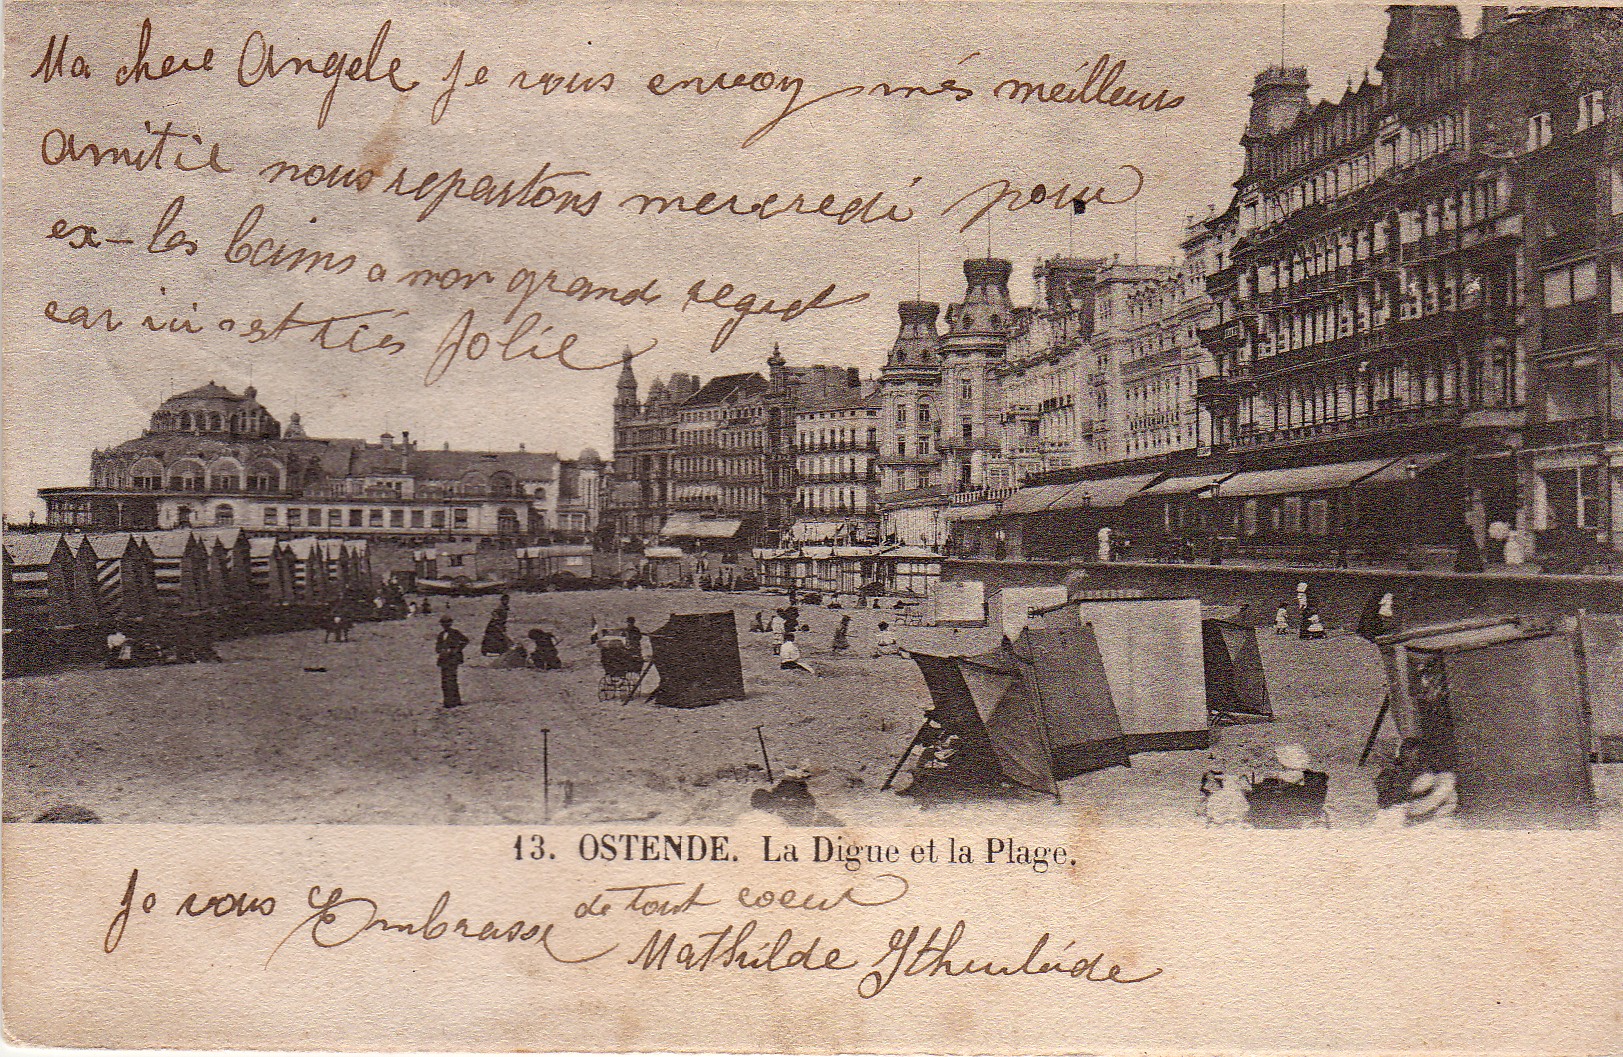 Ma chere Angele je vous envoy més meilleurs
amitie nous repartons mercredi pour
ex-les bains a mon grand regret
car ici est trés jolie
13. OSTENDE. La Digue et la Plage.
Je vous Embrasse de tout coeur
Mathilde